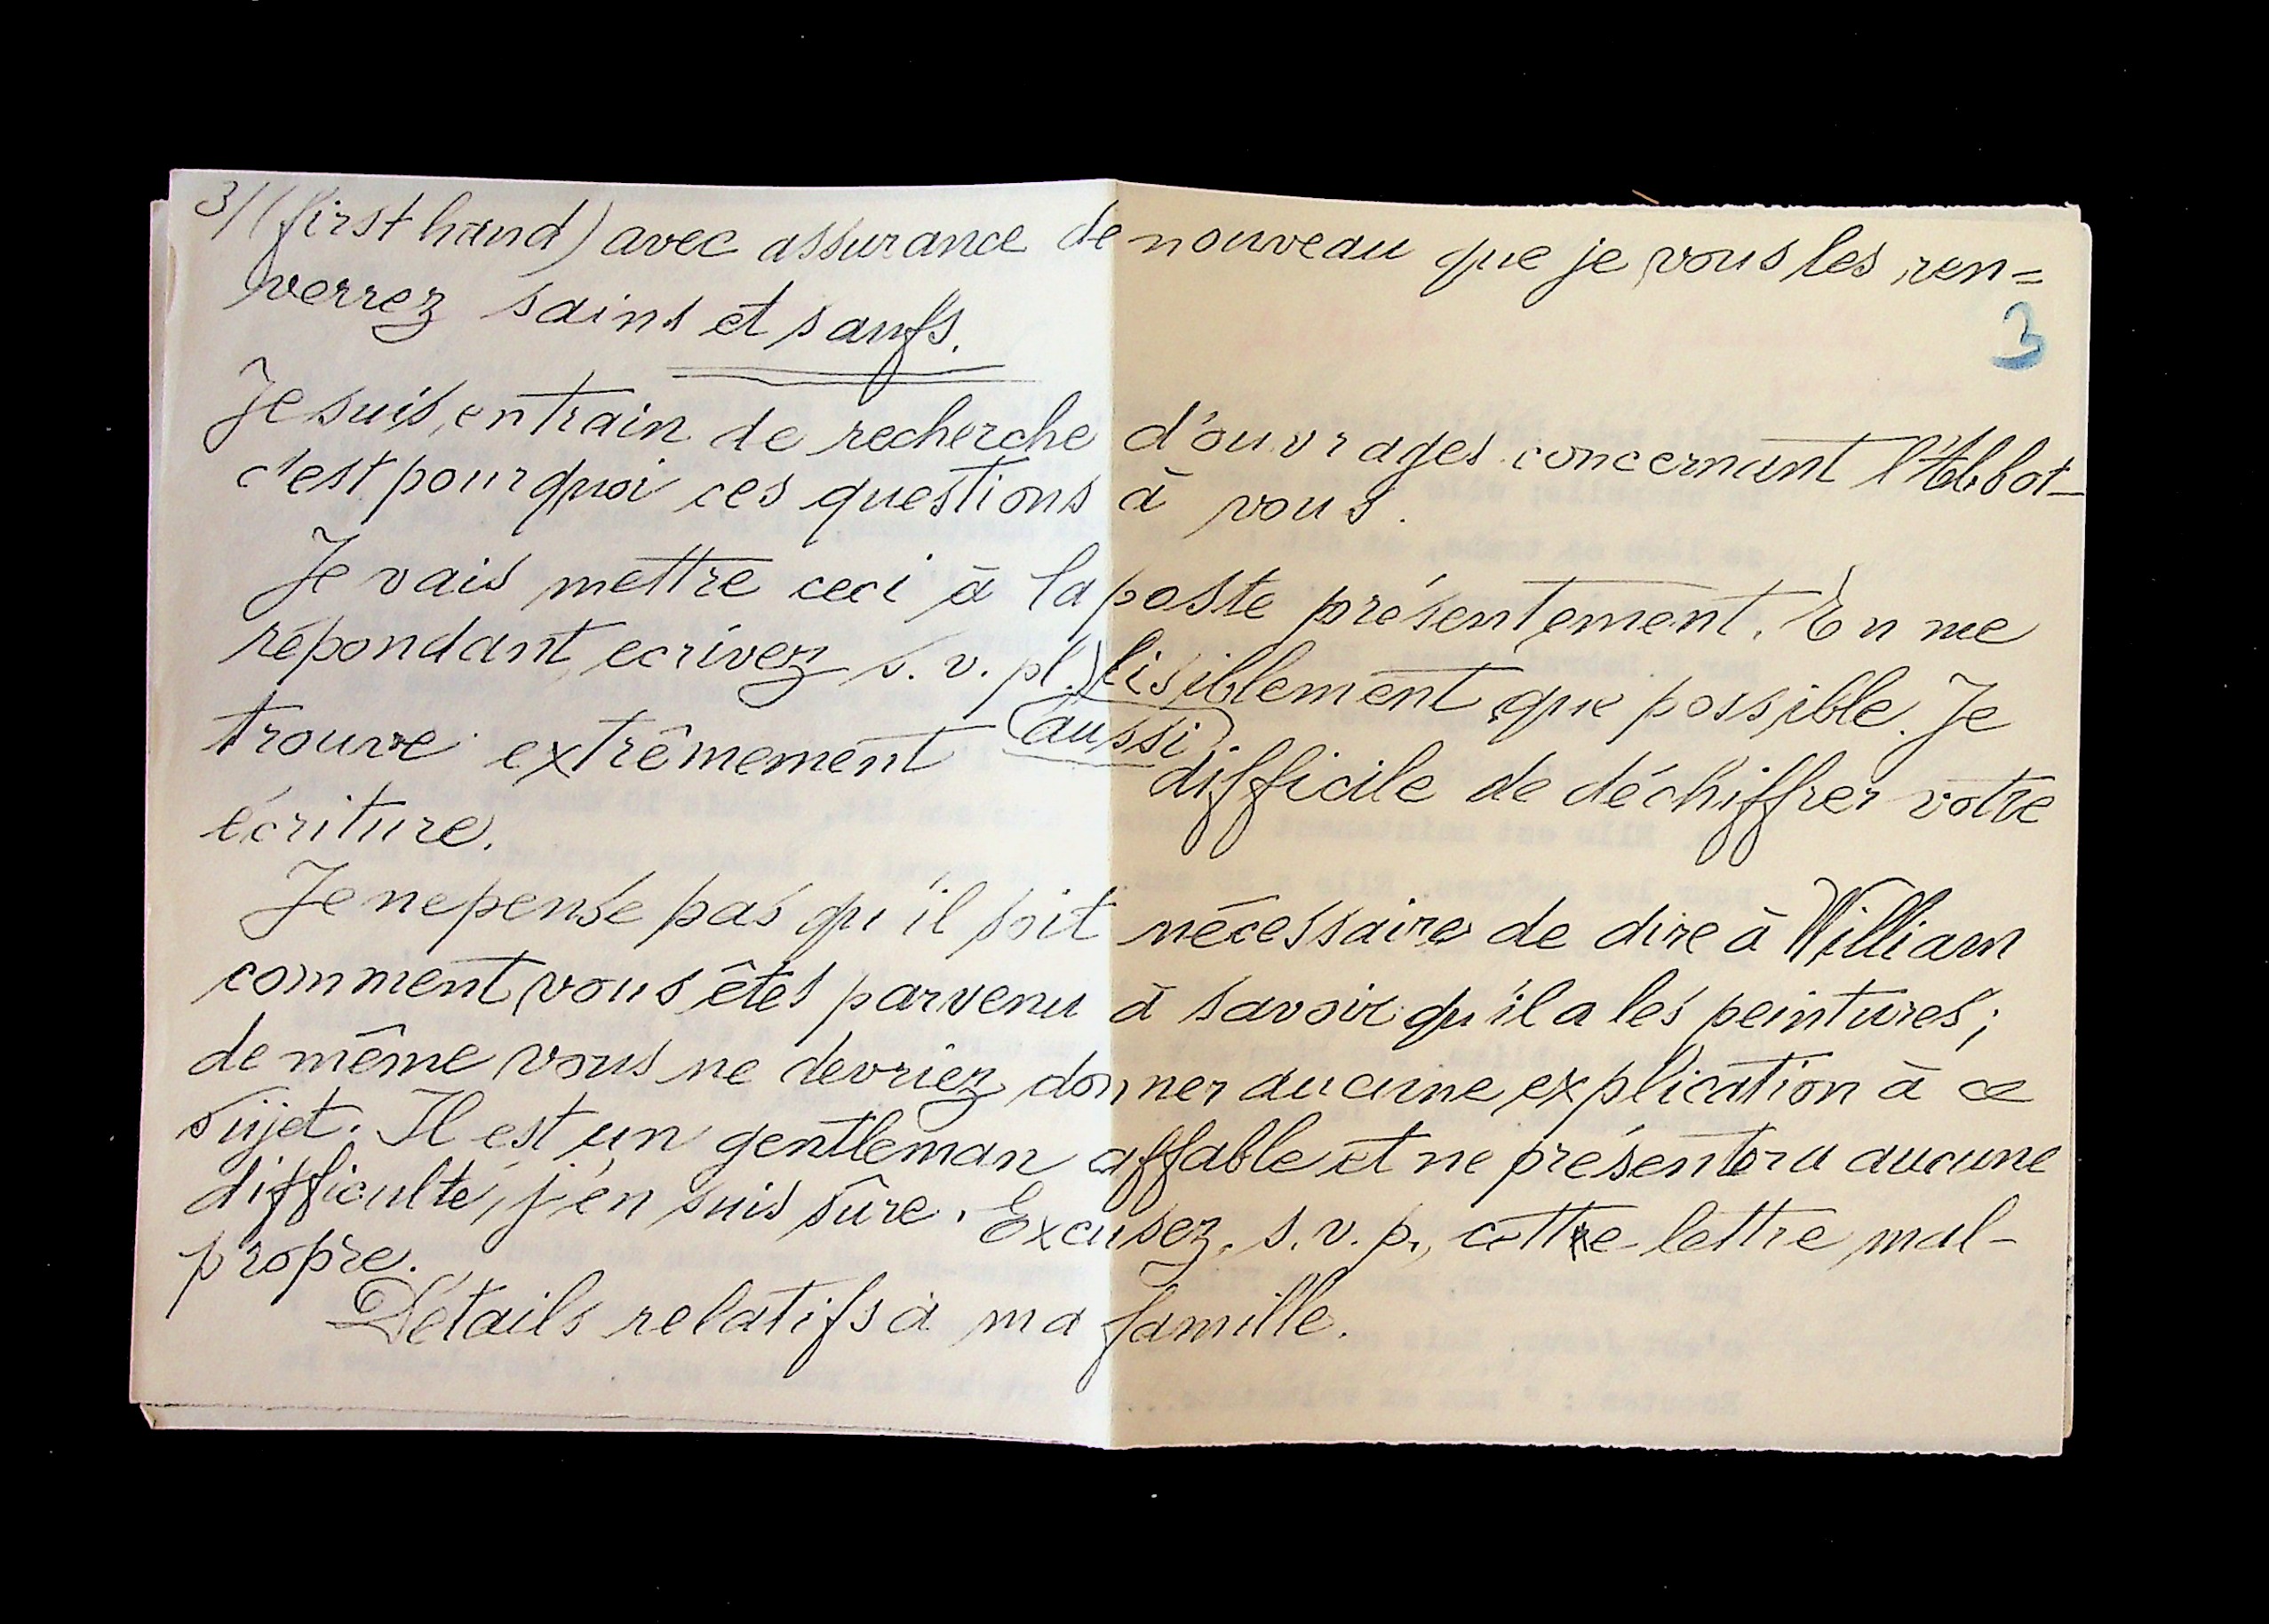 3/ (first hand) avec assurance de nouveau que je vous les ren=
verrez sains et saufs.
3
Je suis en train de recherche d'ouvrages concernant l'Abbot-
c'est pourquoi ces questions à vous.
Je vais mettre ceci à la poste présentement. En me
répondant, ecrivez s. v. pl.) lisiblement que possible. Je
(aussi)
trouve extrêmement difficile de déchiffrer votre
écriture.
Je ne pense pas qu'il soit nécessaire de dire à William
comment vous êtes parvenu à savoir qu'il a les peintures;
de même vous ne devriez donner aucune explication à ce
sujet. Il est un gentleman affable et ne présentera aucune
difficulté, j'en suis sûre. Excusez, s. v. p., cette lettre mal-
propre.
Détails relatifs à ma famille.